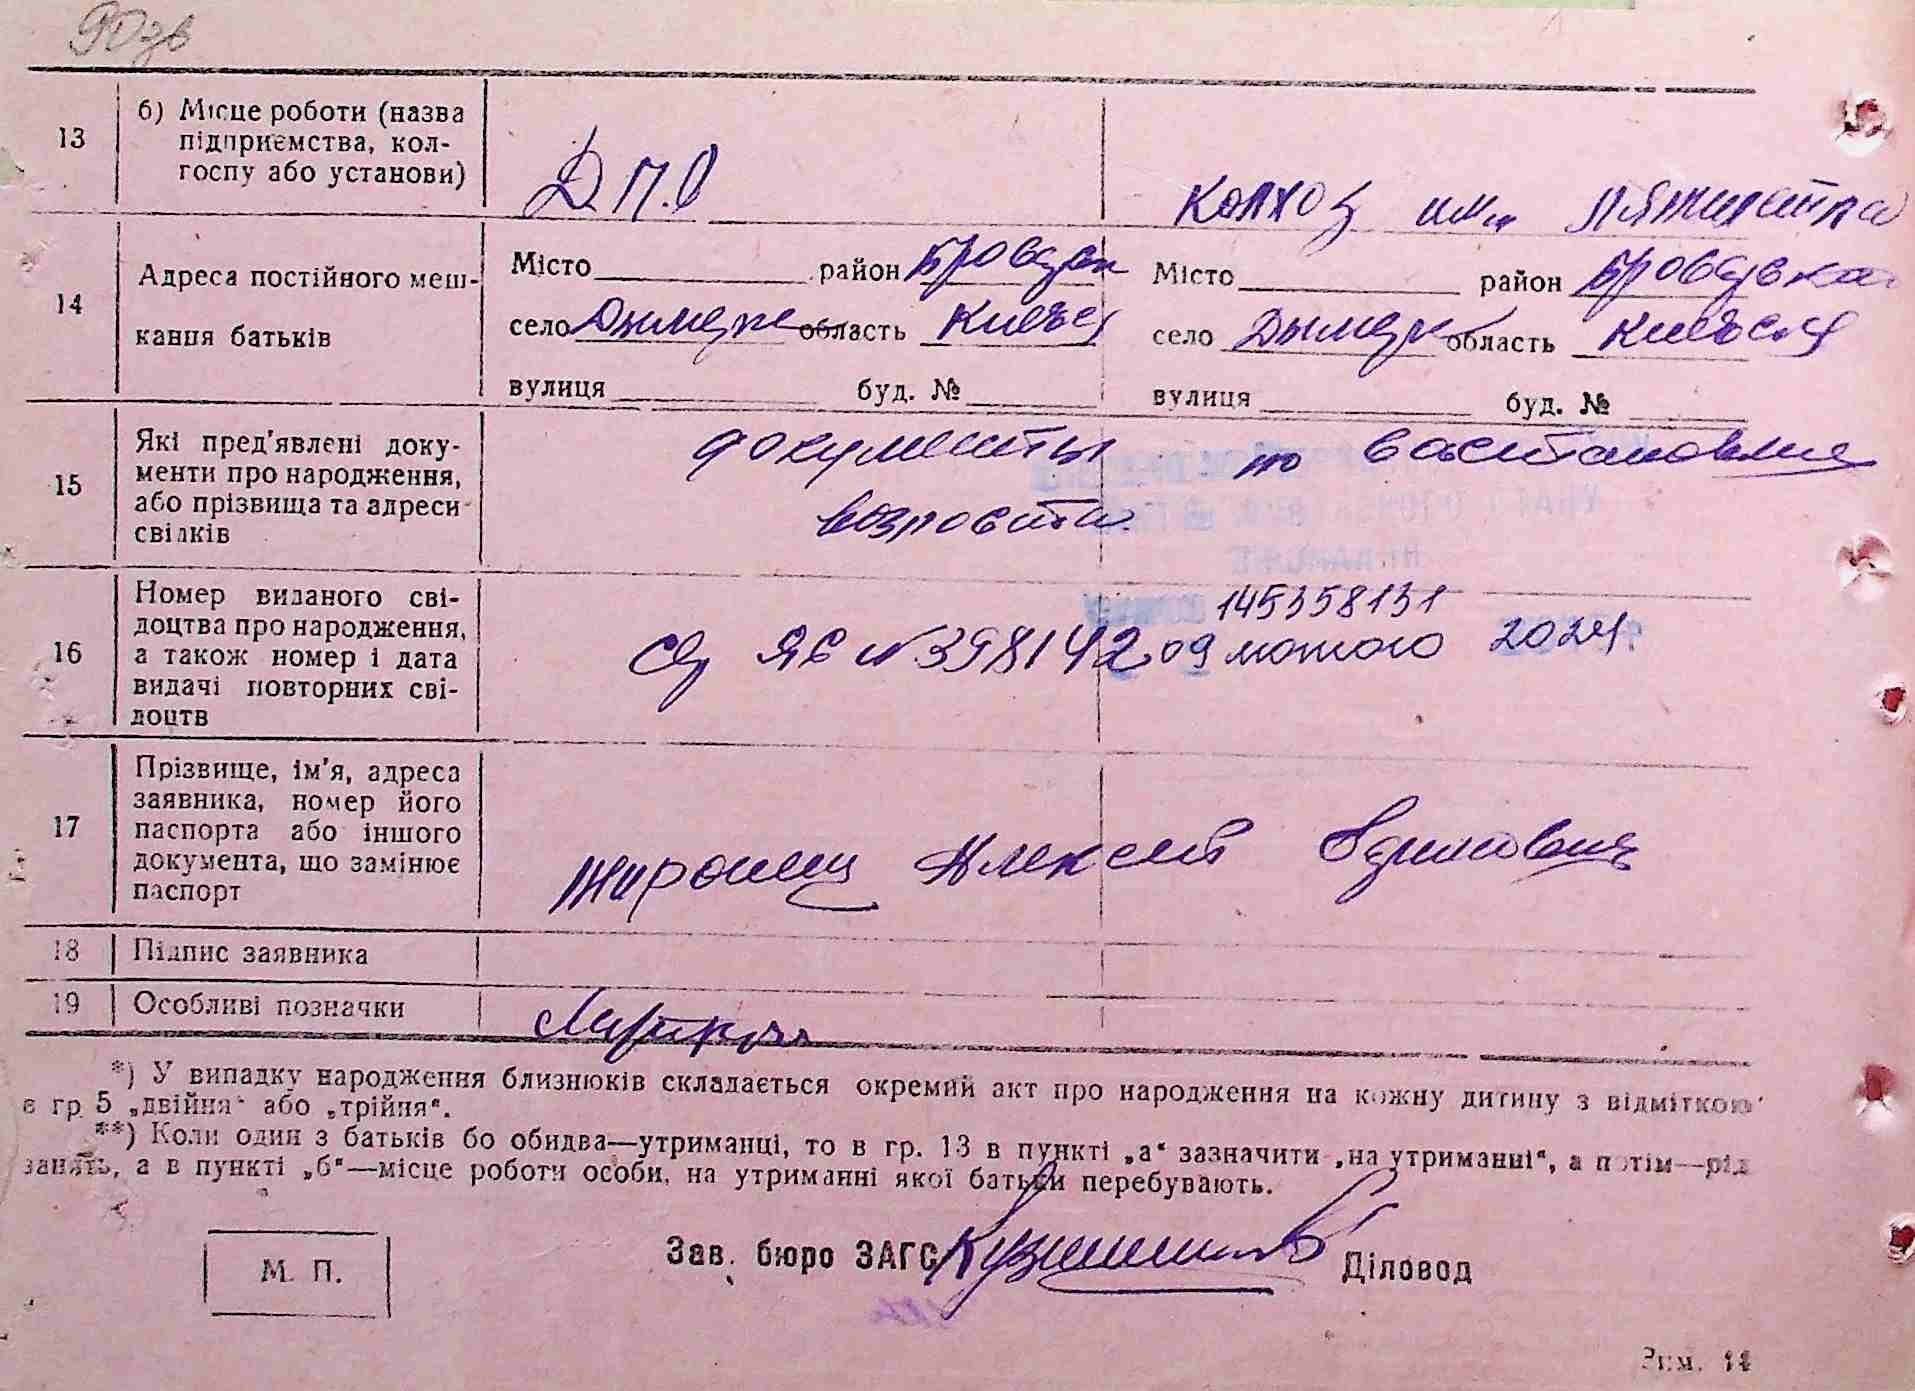 13
б) Місце роботи (назва
підприємства, кол-
госпу або установи)
Д.П.О
колхоз им. Пятилетка
14
Адреса постійного меш-
кання батьків
Місто район Бровары Місто район Броварска
село Дымерка область Киевск село Дымерка область Киевска
вулиця буд. № вулиця буд. №
15
Які пред'явлені доку-
менти про народження,
або прізвища та адреси
свідків
документы по васстановлению
возроста.
16
Номер виданого сві-
доцтва про народження,
а також номер і дата
видачі повторних сві-
доцтв
145358131
ЯЄ №398142 09 лютого 2024
17
Прізвище, ім'я, адреса
заявника, номер його
паспорта або іншого
документа, що замінює
паспорт
Алексей
18
Підпис заявника
19
Особливі позначки
*) У випадку народження близнюків складається окремий акт про народження на кожну дитину з відміткою
в гр 5 „двійня“ або „трійня“.
**) Коли один з батьків бо обидва—утриманці, то в гр. 13 в пункті „а“ зазначити „на утриманні“, а потім—рід
занять, а в пункті „б“—місце роботи особи, на утриманні якої батьки перебувають.
М. П.
Зав. бюро ЗАГС Діловод